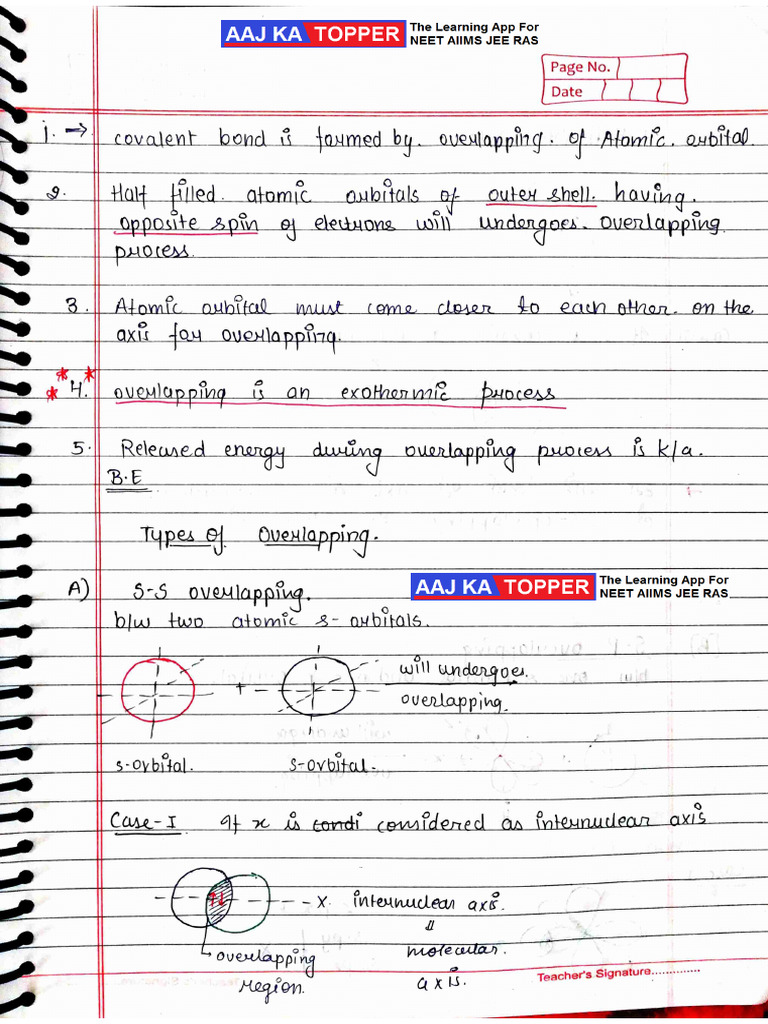 AAJ KA TOPPER The Learning App For
NEET AIIMS JEE RAS
Page No.
Date
1. → covalent bond is formed by. overlapping. of Atomic. orbital.
2. Half filled. atomic orbitals of outer shell. having.
opposite spin of electrons will undergoes. overlapping
process.
3. Atomic orbital must come closer to each other. on the
axis for overlapping.
* * * 4. overlapping is an exothermic process
5. Released energy during overlapping process is k/a.
B.E
Types of Overlapping.
A) S-S overlapping.
AAJ KA TOPPER The Learning App For
NEET AIIMS JEE RAS
b/w two atomic s- orbitals.
+ will undergoes.
overlapping.
s-orbital. s-orbital.
Case-I If x is condi considered as internuclear axis
↑↓ x. internuclear axis.
||
overlapping molecular.
region. axis.
Teacher's Signature..............